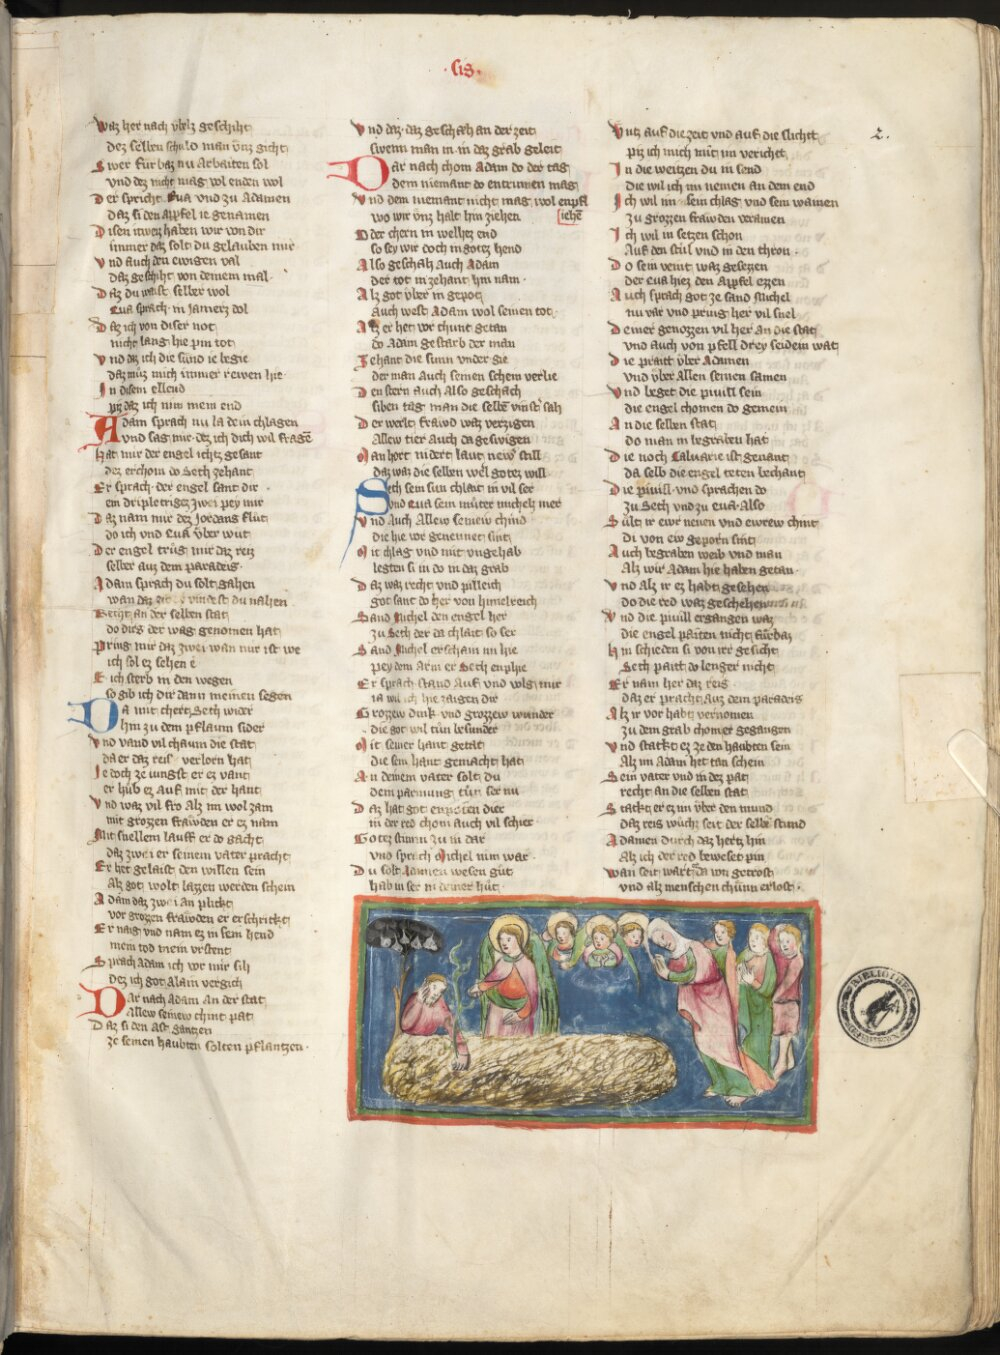 Gis.
2.
Waz her nach vbelz geschiht
dez selben schuld man vnz gicht
Swer fürbaz nu arbaiten sol
vnd dez nicht mag vol enden wol
Der spricht Eua vnd zu Adamen
daz si den appfel ie genamen
Disen itweiz haben wir von dir
immer daz solt du gelauben mir
Vnd auch den ewigen val
daz geschiht von deinem mal
Daz du waist selber wol
Eua sprach in jamerz dol
Daz ich von diser not
nicht lang hie pin tot
Vnd daz ich die sünd ie begie
daz müz mich immer rewen hie
In disem ellend
piz daz ich nim mein end
Adam sprach nu la dein chlagen
vnd sag mir dez ich dich wil fragē
Hat mir der engel ichtz gesant
dez erchom do Seth zehant
Er sprach der engel sant dir
ein dripletrigez zwei pey mir
Daz nam mir dez Jordans flüt
do ich vnd Eua vber wüt
Der engel trüg mir daz reiz
selber auz dem paradeis
Adam sprach du solt gahen
wan daz vindest du nahen
Recht an der selben stat
do dirs der wag genomen hat
Pring mir daz zwei wan mir ist we
ich sol ez sehen e
E ich sterb in den wegen
so gib ich dir dann meinen segen
Da mit chert Seth wider
hin zu dem pflaum sider
Vnd vand vil chaum die stat
da er daz reis verlorn hat
Je doch ze iungst er ez vant
er hüb ez auf mit der hant
Vnd waz vil fro alz im wol zam
mit grozzen frawden er ez nam
Mit snellem lauff er do gacht
daz zwei er seinem vater pracht
Er het gelaist den willen sein
alz got wolt lazzen werden schein
Adam daz zwei an plickt
vor grozen frawden er erschrickt
Er naig vnd nam ez in sein hend
mein tod mein vrstent
Sprach Adam ich vor mir sih
dez ich got alain vergich
Dar nach Adam an der stat
allew seinew chint pat
Daz si den ast gantzen
ze seinen haubten solten pflantzen
Vnd daz daz geschäh an der zeit
swenn man in in daz grab geleit
Dar nach chom Adam do der tag
dem niemant do entrinnen mag
Vnd dem niemant nicht mag wol enpfl
iehē
wo wir vnz halt hin ziehen
Oder chern in welhez end
so sey wir doch in gotez hend
Also geschah auch Adam
der tot in zehant hin nam
Alz got vber in gepot
auch west Adam wol seinen tot
Alz er het vor chunt getan
do Adam gestarb der man
Zehant die sunn vnder gie
der man auch seinen schein verlie
Den stern auch also geschach
siben tag man die selbē vinstˀ sah
Der werlt frawd waz verzigen
allew tier auch da geswigen
Man hort ndert laut new still
daz waz die selben weil gotez will
Seth sein sun chlait in vil ser
vnd Eua sein müter michelz mer
Vnd auch allew seinew chind
die hie vor genennet sint
Mit chlag vnd mit vngehab
legten si in do in daz grab
Daz waz recht vnd pilleich
got sant do her von himelreich
Sand Michel den engel her
zu Seth der da chlait so ser
Sand Michel erschain im hie
pey dem arm er Seth enphie
Er sprach stand auf vnd volg mir
ia wil ich hie zaigen dir
Grozzew dink vnd grozzew wunder
die got wil tün besunder
Mit seiner hant getat
die sein hant gemacht hat
An deinem vater solt du
dem parmung tüt ser nu
Daz hat got enpoten dier
in der red chom auch vil schier
Gotez stimm zu in dar
vnd sprach Michel nim war
Du solt Adamen wesen güt
hab in ser in deiner hüt
Vntz auf die zeit vnd auf die slicht
piz ich mich mit im vericht
In die weitzen du in send
die wil ich im nemen an dem end
Ich wil im sein chlag vnd sein wainen
zu grozzen frawden verainen
Ich wil in setzen schon
auf den stul vnd in den thron
Do sein veint waz gesezzen
der Eua hiez den appfel ezzen
Auch sprach got ze sand Michel
nu var vnd pring her vil snel
Deiner genozzen vil her an die stat
vnd auch von pfell drey seidein wat
Die prait vber Adamen
vnd vber allen seinen samen
Vnd beget die piuill sein
die engel chomen do gemein
An die selben stat
do man in begraben hat
Die noch Caluarie ist genant
da selb die engel teten bechant
Die piuill vnd sprachen do
zu Seth vnd zu Eua also
Sült ir ewr neuen vnd ewrew chint
di von ew geporn sint
Auch begraben weib vnd man
alz wir Adam hie haben getan
Vnd alz ir ez habt gesehen
do die red waz geschehen
Vnd die piuill ergangen waz
die engel paiten nicht fürbaz
Hin schieden si von irr gesicht
Seth pait do lenger nicht
Er nam her daz reis
daz er pracht auz dem paradeis
Alz ir vor habt vernomen
zu dem grab chom er gegangen
Vnd stackt ez ze den haubten sein
alz im Adam het tan schein
Sein vater vnd in dez pat
recht an die selben stat
Stackt er ez im vber den mund
daz reis wüchs seit der selbē stund
Adamen durch daz hertz hin
alz ich der red beweset pin
Wan seit wart da von getrost
vnd alz menschen chünn erlost